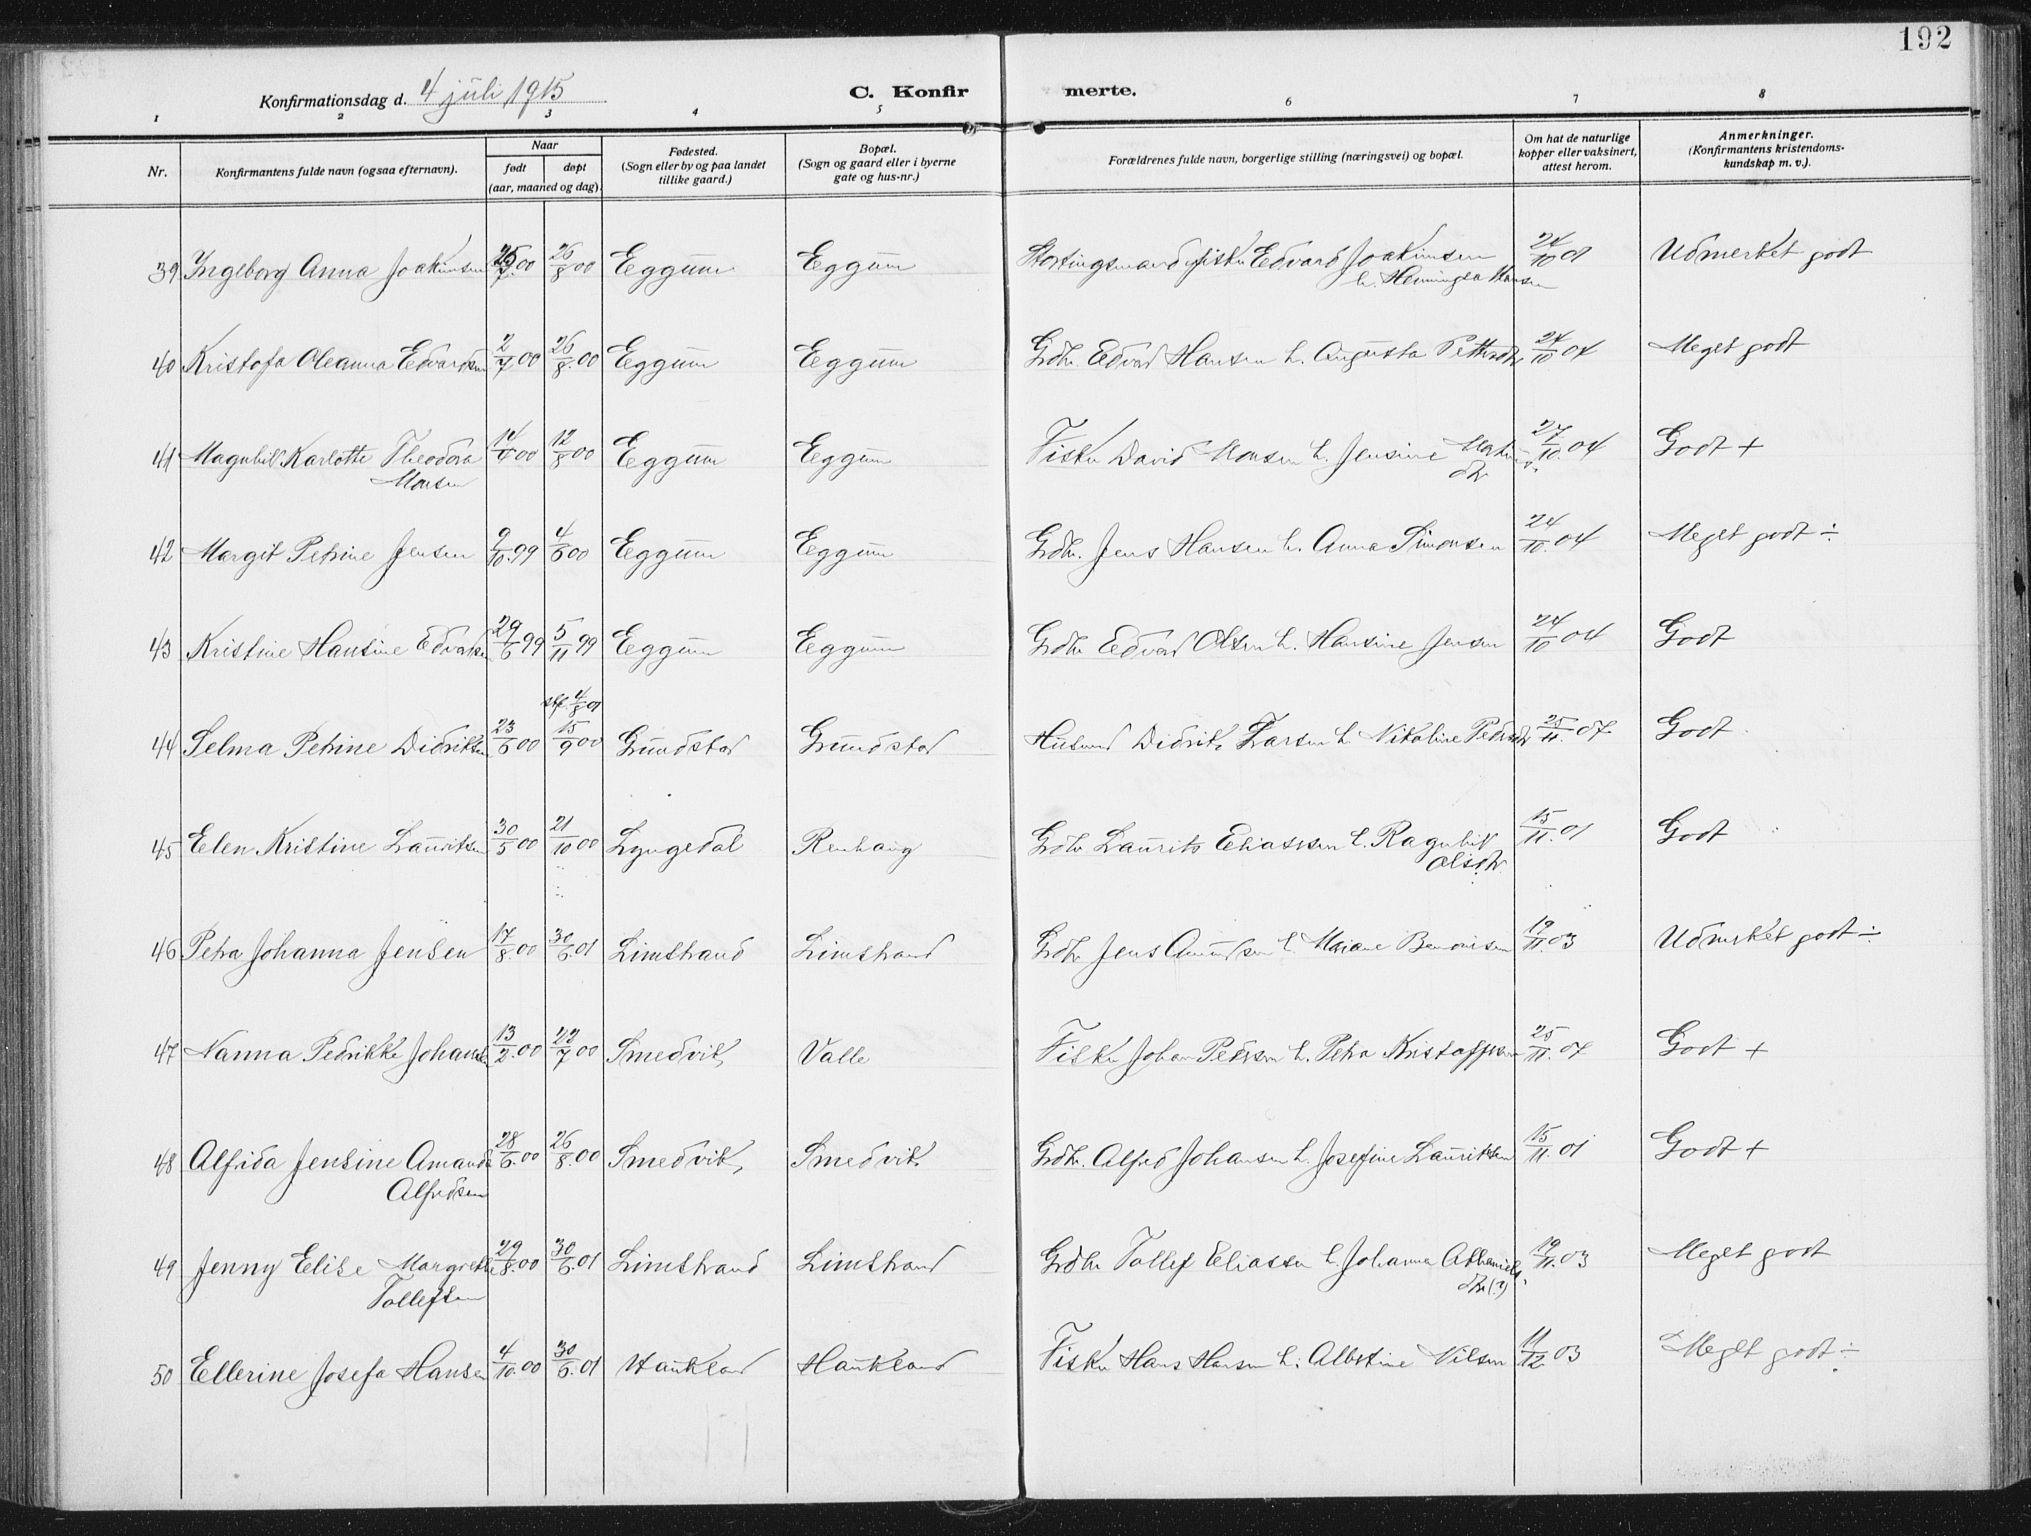 192
Konfirmationsdag d. 4 juli 1915
C. Konfirmerte.
1 2 3 4 5 6 7 8
Nr.
Konfirmantens fulde navn (ogsaa efternavn).
Naar
født døpt
(aar, maaned og dag).
Fødested.
(Sogn eller by og paa landet
tillike gaard.)
Bopæl.
(Sogn og gaard eller i byerne
gate og hus-nr.)
Forældrenes fulde navn, borgerlige stilling (næringsvei) og bopæl.
Om hat de naturlige
kopper eller vaksinert,
attest herom.
Anmerkninger.
(Konfirmantens kristendoms-
kundskap m. v.).
39 Ingeborg Anna Joakimsen 25/7.00 26/8 00 Eggum Eggum Stortingsmand fisker Edvard Joakimsen 24/10 01 Udmerket godt
h. Henningea Hansen
40 Kristofa Oleanna Edvardsen 2/7 00 26/8.00 Eggum Eggum Grdbr. Edvard Hansen h. Augusta 24/10 04 Meget godt
41 Magnhil Karlotte Theodora 12/8 00 Eggum Eggum Fisker David Monsen h. Jensine 27/10.04 Godt +
Monsen dtr
42 Margit Petrine Jensen 9/10.99 4/6 00 Eggum Eggum Grdbr. Jens Hansen h. Anna Simonsen 24/10.04 Meget godt ÷
43 Kristine Hansine Edvardsen 29/6 99 5/11 99 Eggum Eggum Grdbr Edvard Olsen h. Hansine Jensen 24/10 04 Godt
4/8 01
44 Selma Petrine Didriksen 23/6 00 15/9 00 Grundstad Grundstad Husmd Didrik Larsen h. Nikoline Pedersdtr 25/11.07 Godt
45 Elen Kristine Lauritsen 30/5 00 21/10 00 Lyngedal Renhaug Grdbr Laurits Eliassen h. Ragnhil 15/11.01 Godt
Olsdtr.
46 Petra Johanna Jensen 17/8.00 30/6.01 Limstrand Limstrand Grdbr Jens Amundsen h. Mariane 19/11.03 Udmerket godt ÷
47 Nanna Pedrikke Johansen 13/2.00 22/7 00 Smedvik Valle Fisker Johan Pedersen h. Petra Kristoffersen 25/11.07 Godt +
48 Alfrida Jensine Amanda 28/6.00 26/8.00 Smedvik, Smedvik Grdbr. Alfred Johansen h. Josefine Lauritsen 15/11.01 Godt +
Alfredsen
49 Jenny Elise Margrethe 29/8.00 30/6.01 Limstrand Limstrand Grdbr Tollef Eliassen h. Johanna 19/11.03 Meget godt
Tollefsen dtr (?)
50 Ellerine Josefa Hansen 4/10.00 30/6.01 Haukland Haukland Fisker Hans Hansen h. Albertine Nilsen 11/12 03 Meget godt ÷